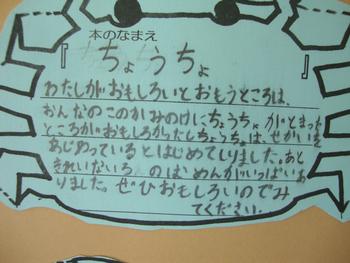 本のなまえ
『ちょうちょ
わたしがおもしろいとおもうところは、
おんなのこのかみのけにちょうちょがとまった
ところがおもしろかったしちょうちょは、せかいを
あじわっているとはじめてしりました。あと
きれいないろ のばめんがいっぱいあ
りました。ぜひおもしろいのでみ
てください。